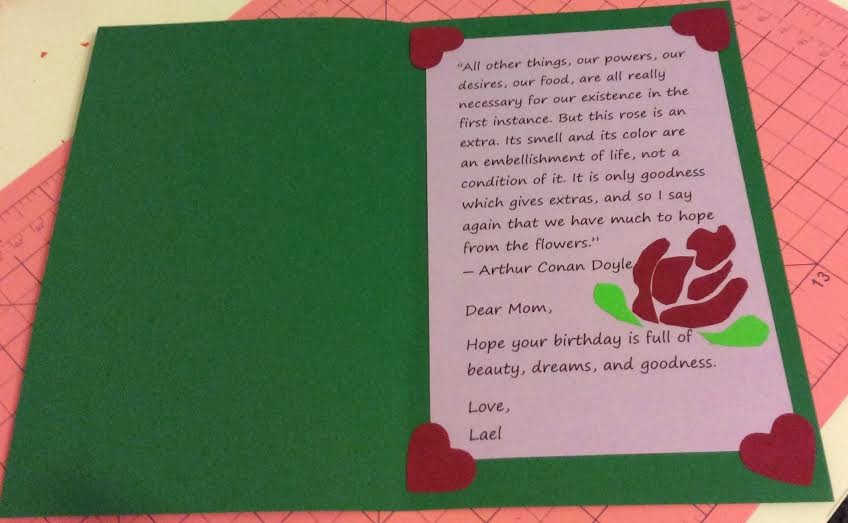 “All other things, our powers, our
desires, our food, are all really
necessary for our existence in the
first instance. But this rose is an
extra. Its smell and its color are
an embellishment of life, not a
condition of it. It is only goodness
which gives extras, and so I say
again that we have much to hope
from the flowers.”
– Arthur Conan Doyle
Dear Mom,
Hope your birthday is full of
beauty, dreams, and goodness.
Love,
Lael
13